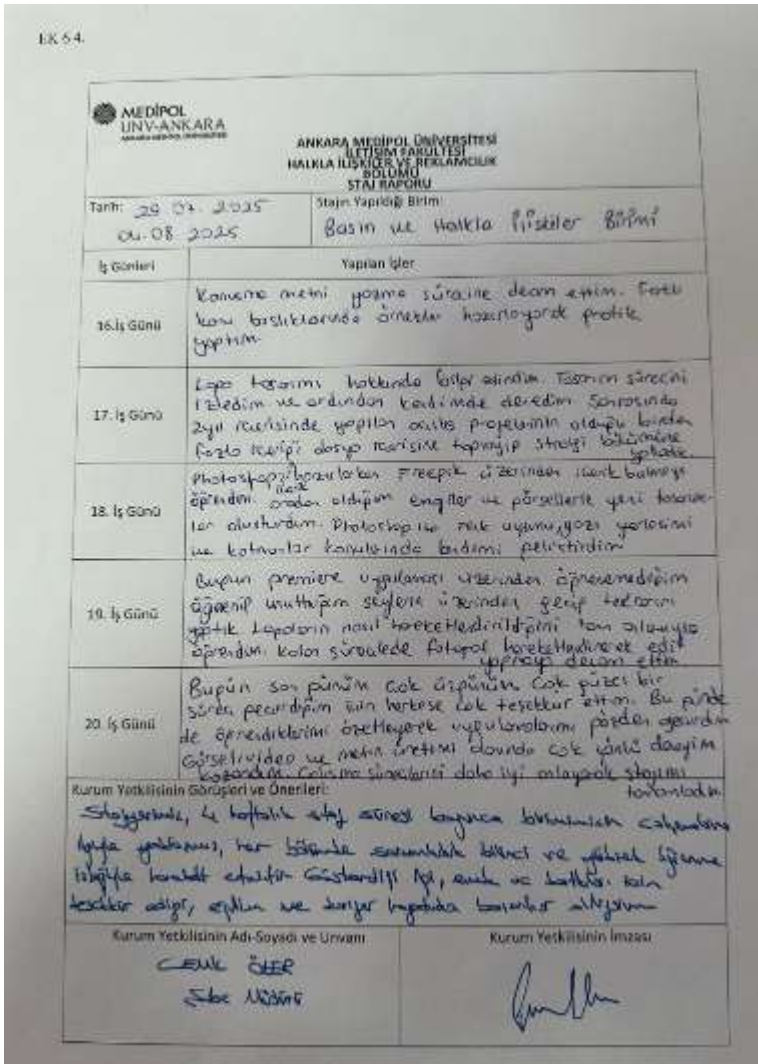 EK 6.4.
MEDİPOL
UNV-ANKARA
ANKARA MEDİPOL ÜNİVERSİTESİ
ANKARA MEDİPOL ÜNİVERSİTESİ
İLETİŞİM FAKÜLTESİ
HALKLA İLİŞKİLER VE REKLAMCILIK
BÖLÜMÜ
STAJ RAPORU
Tarih: 29.07.2025
04.08.2025
Stajın Yapıldığı Birim:
Basın ve Halkla İlişkiler Birimi
İş Günleri
Yapılan İşler
16.İş Günü
Konuşma metni yazma sürecine devam ettim. Farklı
konu başlıklarında örnekler hazırlayarak pratik
yaptım.
17. İş Günü
Logo tasarımı hakkında bilgi edindim. Tasarım sürecini
izledim ve ardından kendimde denedim. Sonrasında
2 yıl içerisinde yapılan açılış projelerinin olduğu birden
fazla içeriği dosya içerisine toplayıp strateji bölümüne
18. İş Günü
Freepik üzerinden içerik bulmayı
öğrendim. oradan aldığım ve görsellerle yeni tasarım-
lar oluşturdum. Photoshop ta renk uyumu, yazı yerleşimi
ve katmanlar konularında kendimi geliştirdim
19. İş Günü
Bugün premiere uygulaması üzerinden öğrenemediğim
öğrenip unuttuğum şeylerin üzerinden geçip tekrarını
yaptık. Logoların nasıl hareketlendirildiğini tam anlamıyla
öğrendim. kalan sürede fotoğraf hareketlendirerek edit
yapmaya devam ettim.
20. İş Günü
Bugün son günüm çok üzgünüm çok güzel bir
süreç geçirdiğim için herkese çok teşekkür ettim. Bu günde
de öğrendiklerimi özetleyerek uygulamalarımı gözden geçirdim
Görsel, video ve metin üretimi alanında çok yönlü deneyim
kazandım. Çalışma süreçlerini daha iyi anlayarak stajımı
tamamladım.
Kurum Yetkilisinin Görüşleri ve Önerileri:
Stajyerimiz, 4 haftalık staj süresi boyunca birimimizin çalışmalarına
ilgiyle yaklaşmış, her bölümde sorumluluk bilinci ve yüksek öğrenme
isteğiyle hareket etmiştir. Gösterdiği ilgi, emek ve katkısı için
teşekkür ediyor, eğitim ve kariyer hayatında başarılar diliyorum
Kurum Yetkilisinin Adı-Soyadı ve Unvanı
CENK
Şube Müdürü
Kurum Yetkilisinin İmzası